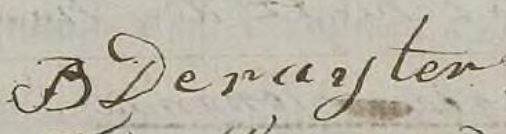 B Deruyter